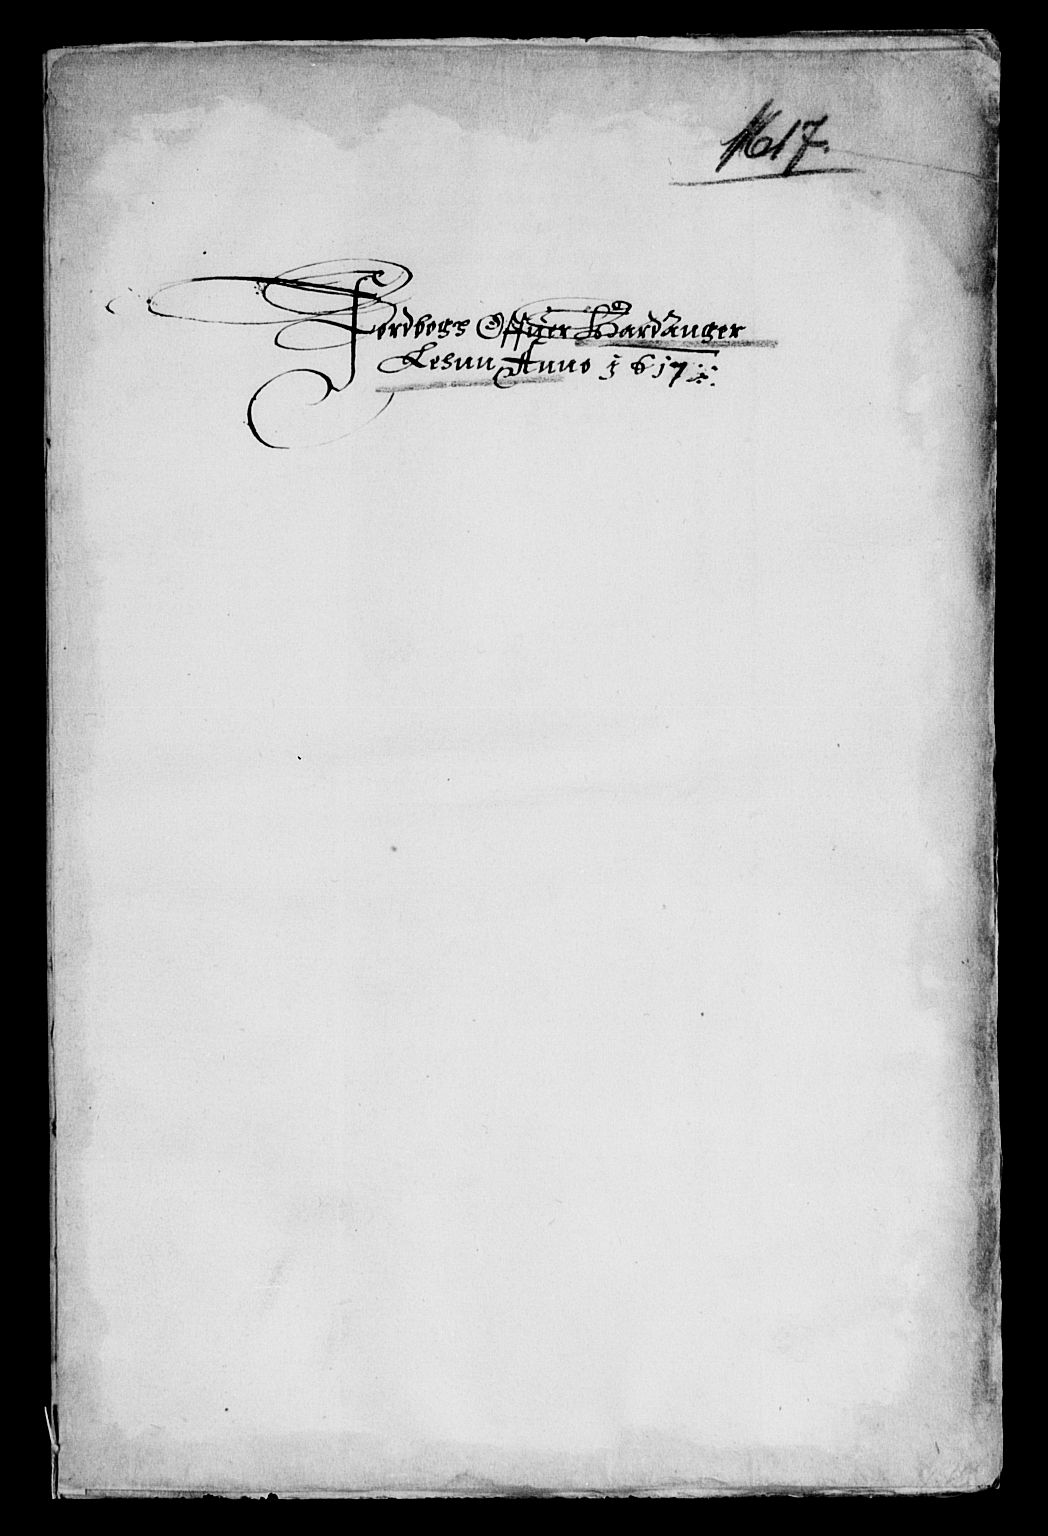 1617.
Jordbogs Offuer Hardanger
Lesnn Anno 1617